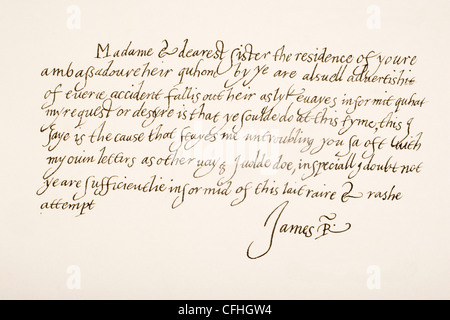 Madame & dearest sister the residence of youre
ambassadoure heir quhom by ye are alsuell advertishit
of everie accident fallis out heir as lykewayes informit quhat
my request or desyre is that ye soulde do at this tyme, this I
saye is the cause that stayes me untroubling you sa oft with
my ouin letters as other wayes I wolde doe, in speciall I doubt not
ye are sufficientlie informid of this lait raire & rashe
attempt
James R.
alamy
alamy
www.alamy.com
CFHGW4